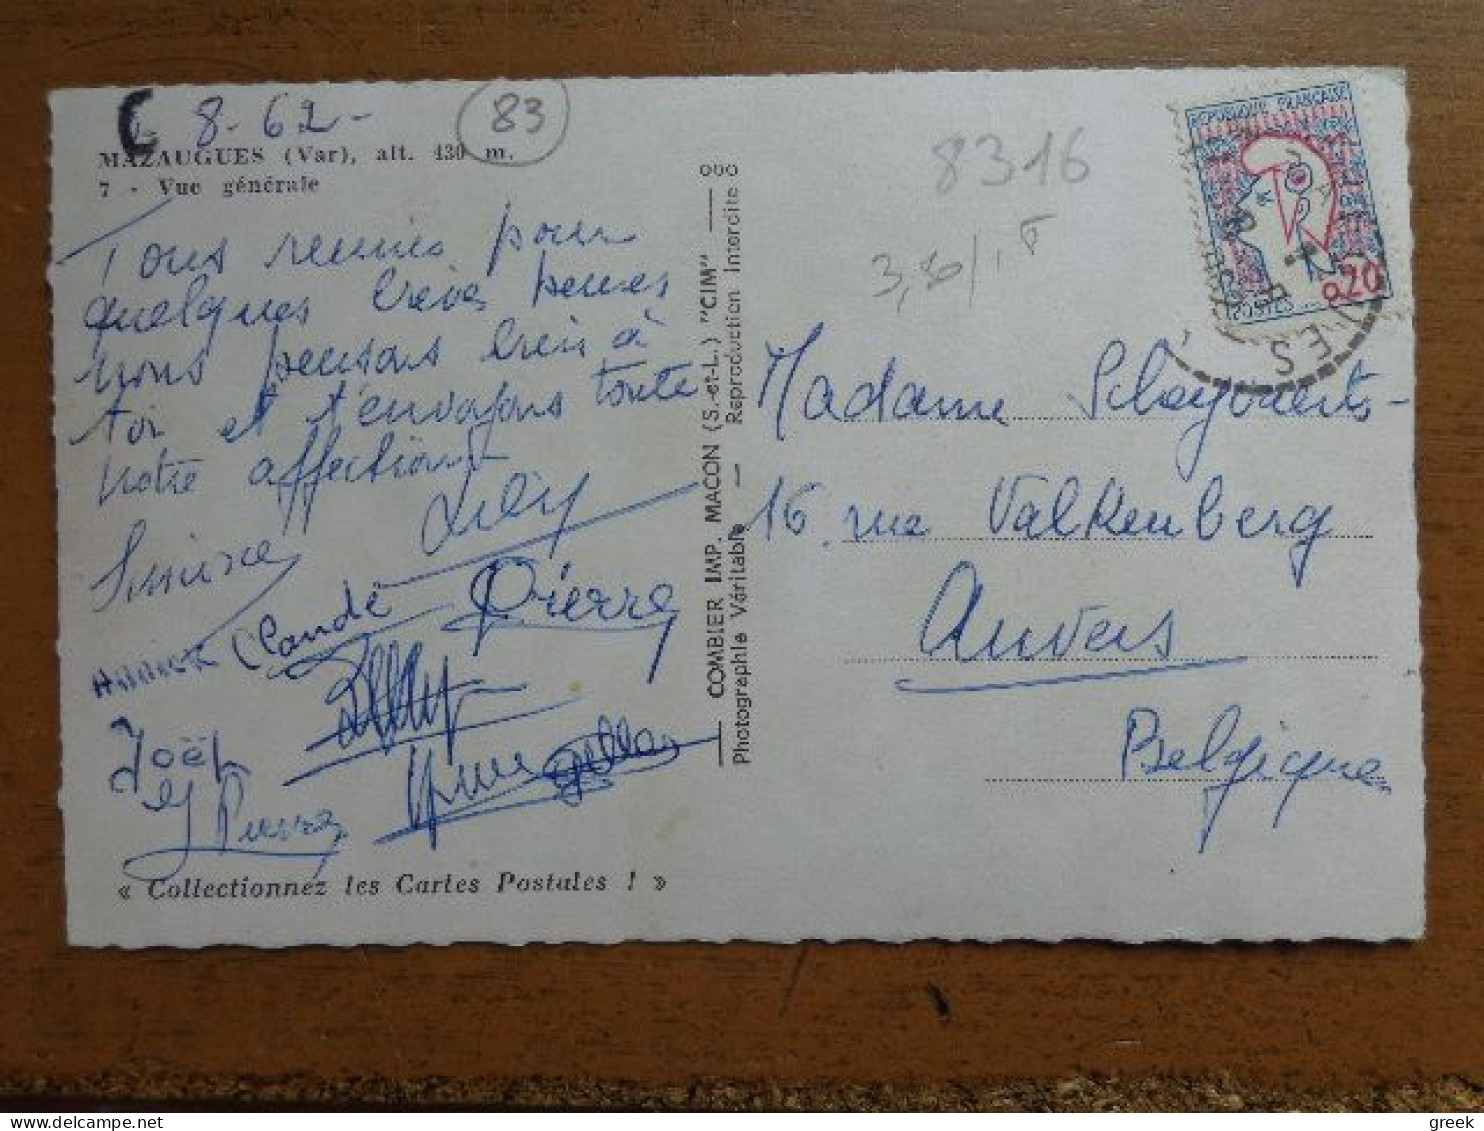 8-62-
83
MAZAUGUES (Var), alt. 430 m.
7 - Vue générale
Tous reunies pour
quelques brèves heures
nous pensons bien à
toi et t'envoyons toute
notre affection
Simone
Lily
Annick Claude Pierre
Joël
Pierre
« Collectionnez les Cartes Postales ! »
COMBIER IMP. MACON (S.-et-L.) "CIM"
Photographie Véritable — Reproduction Interdite
8316
REPUBLIQUE FRANÇAISE
0,20
POSTES
Madame
16 rue Valkenberg
Anvers
Belgique
greek